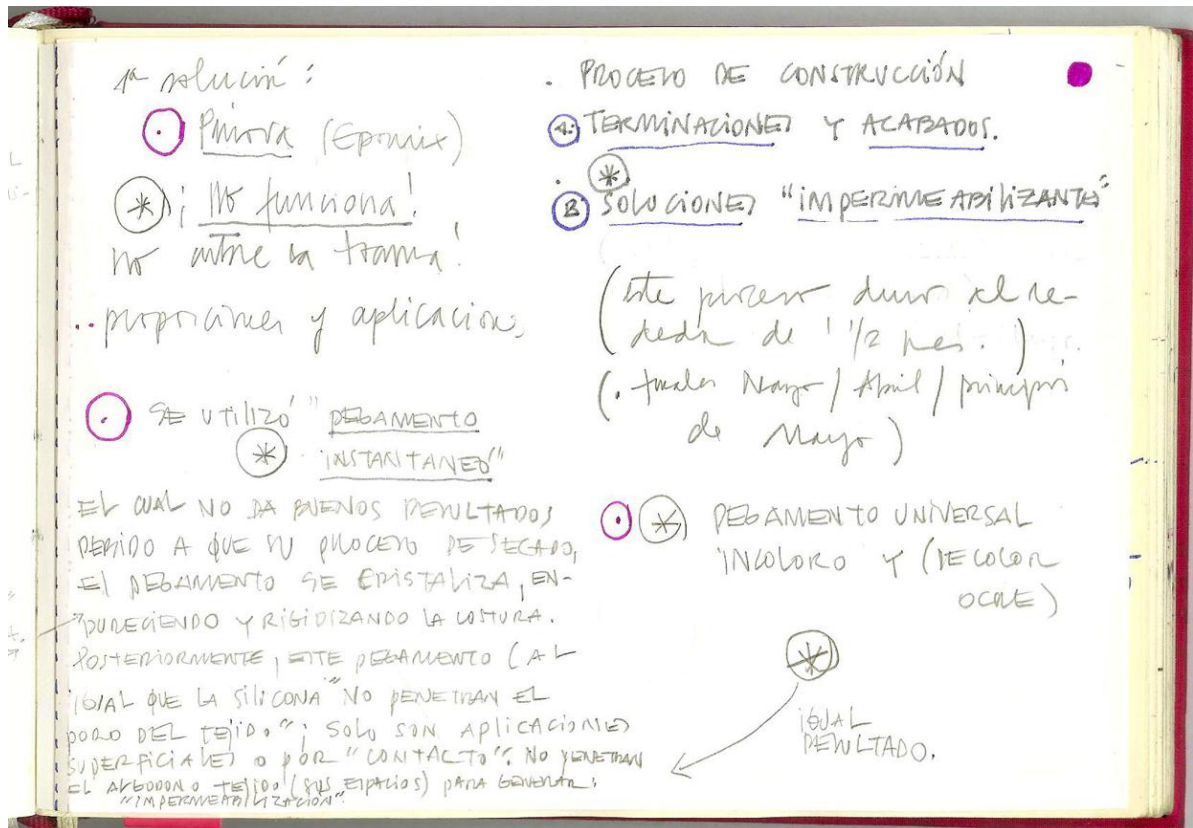 1ª solución:
Pintura (Epomix)
¡No funciona!
no cubre la trama!
..proporciones y aplicaciones
SE UTILIZÓ "PEGAMENTO
INSTANTANEO"
EL CUAL NO DA BUENOS RESULTADOS
DEBIDO A QUE SU PROCESO DE SECADO,
El PEGAMENTO SE CRISTALIZA, EN-
DURECIENDO Y RIGIDIZANDO LA COSTURA.
POSTERIORMENTE, ESTE PEGAMENTO (AL
IGUAL QUE LA SILICONA "NO PENETRAN EL
PORO DEL TEJIDO."; SOLO SON APLICACIONES
SUPERFICIALES O POR "CONTACTO". NO PENETRAN
EL ALGODON O TEJIDO (SUS ESPACIOS) PARA GENERAR:
"IMPERMEABILIZACIÓN".
. PROCESO DE CONSTRUCCIÓN
A. TERMINACIONES Y ACABADOS.
B SOLUCIONES "IMPERMEABILIZANTES"
(Este proceso duró alre-
dedor de 1 1/2 mes.)
(. finales Mayo / Abril / principios
de Mayo)
PEGAMENTO UNIVERSAL
INCOLORO Y (DE COLOR
OCRE)
IGUAL
RESULTADO.